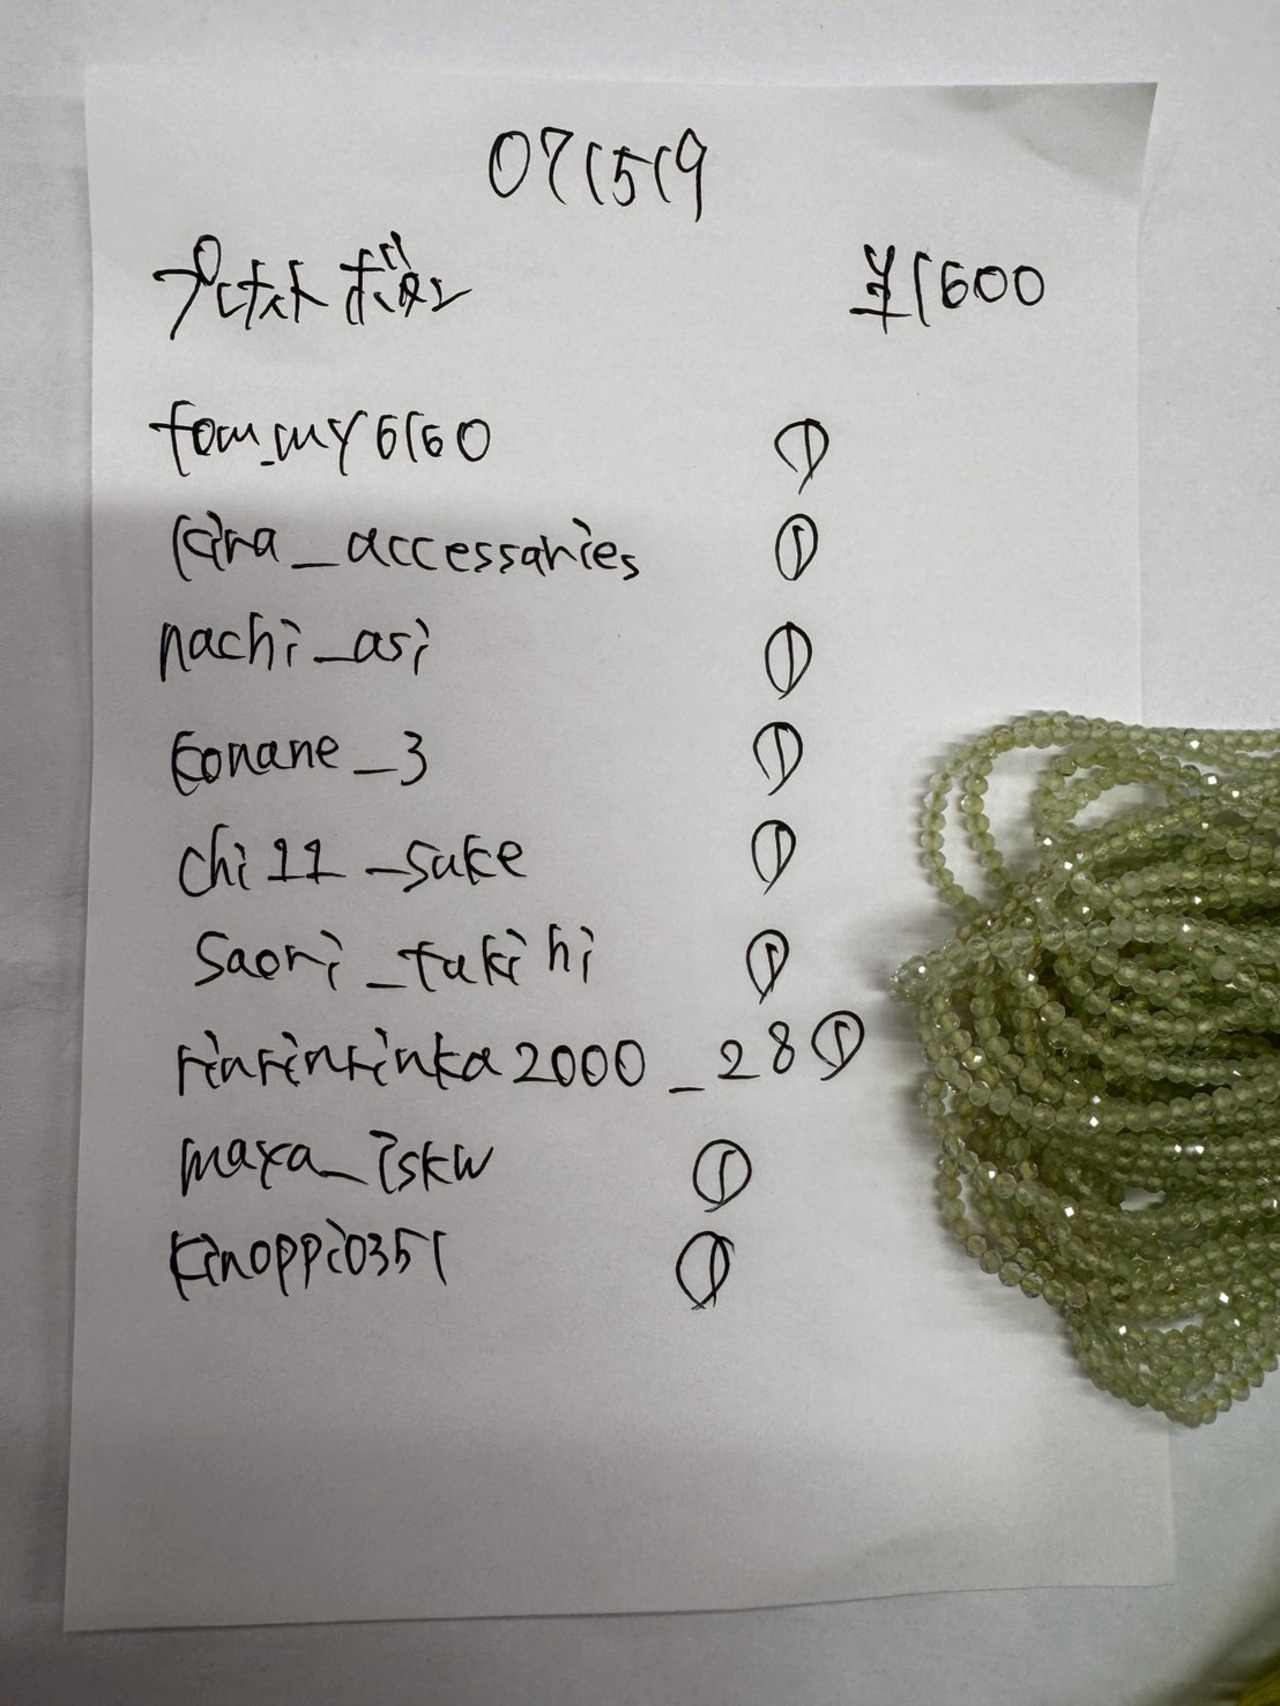 071519
プレナイト ボタン ¥1600
tom_my6160 ①
kira_accessaries ①
nachi_asi ①
konane_3 ①
chi11_sake ①
Saori_takihi ①
rinrinrinka2000_28 ①
maya_iskw ①
kinoppi0351 ①